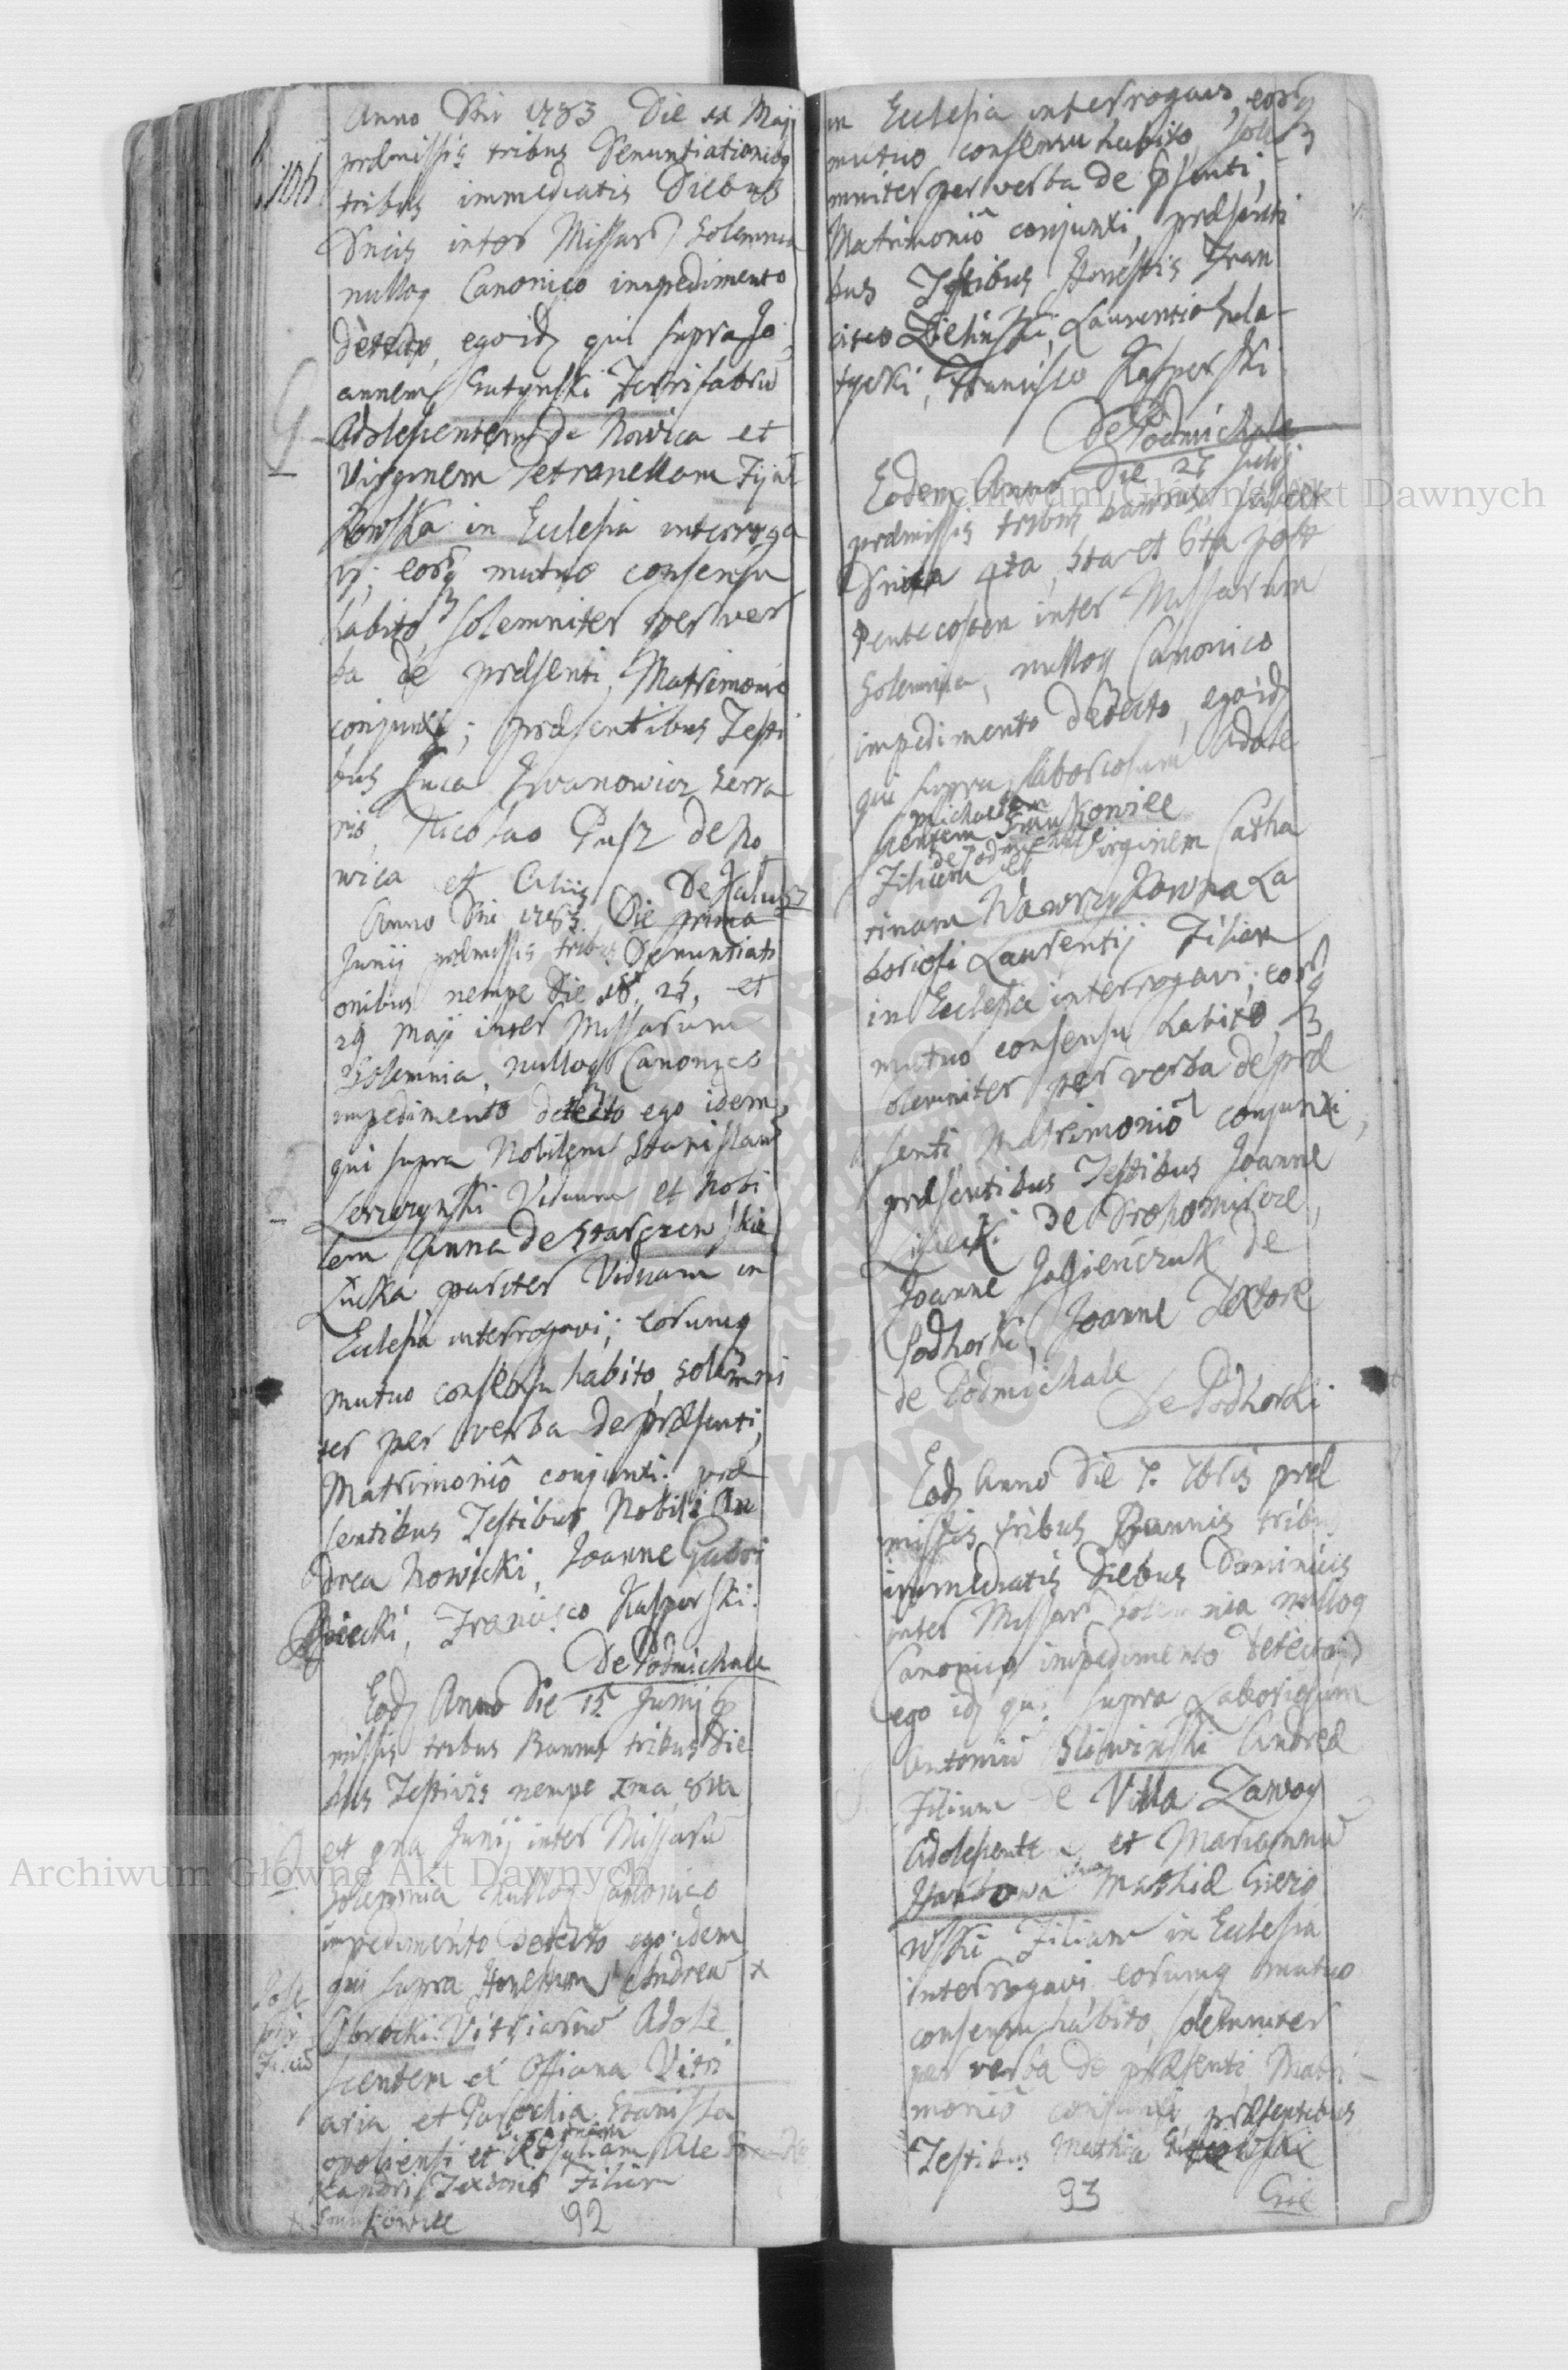 Anno Dni 1783 Die 11 Maji
prdmissis tribus Denuntiationibq
tribus immediatis Diebus
Dncis inter Missar Solemnia
nulloq Canonico impedimento
detecto, ego idq qui supra Jo
annem Gutynski Ferrifabru
Adolescentem de Nowica et
Virginem Petronellam
kowska in Ecclesia interroga
vi; eorq mutuo consensu
habito, solemniter per ver
ba de prdsenti, Matrimonio
conjunxi; prdsentibus Testi
bus Luca Iwanowicz Serra
rio, Nicolao Gusz de No
wica et Aliis
De Kalusz
Anno Dni 1783 Die prima
Junij prdmissis tribus Denuntiati
onibus nempe Die 18, 25, et
29 Maji inter Missarum
Solemnia, nulloq Canonico
impedimento detecto ego idem
qui supra Nobilem Stanislau
Viduum et Nobi
lem Anna de Starczewskie
Łucka pariter Viduam in
Ecclesia interrogavi; eorumq
mutuo consensu habito, solemni
ter per verba de prdsenti,
Matrimoniô conjunxi. prd
sentibus Testibus Nobili An
drea Nowicki, Joanne
Francisco Kasperski.
De Podmichale
Eodq Anno Die 15 Junij
missis tribus Bannis tribus Die
bus Festivis nempe 1ma, 8va
et 9na Junij inter Missaru
solemnia nulloq Canonico
impedimento detecto ego idem
qui supra Honestum Andream x
Obrocki Vitriarium Adole
scentem ex Officina Vitri
aria et Parochia Stanisla
opoliensi et Rosaliam Ale
xandri Textoris Filiam
92
in Ecclesia interrogavi, eorq
mutuo consensu habito, sole
mniter per verba de psenti,
Matrimoniô conjunxi, prdsenti
bus Testibus Honestis Fran
cisco Zielinski, Laurentio Hula-
tycki, Francisco Kasperski
De Podmichale
Eodem Anno Die 27 Julij
prdmissis tribus bannis scilicet
Dnica 4ta, 5ta et 6ta post
Pentecosten inter Missarum
Solemnia, nulloq Canonico
impedimento detecto, ego idq
qui supra laboriosum Adole
Michaelem
scentem
de Podmichale
Filium et Virginem Catha
rinam Wawrzykowna La
boriosi Laurentij Filiam
in Ecclesia interrogavi; eorq
mutuo consensu habito, s
olemniter per verba de prd
senti Matrimoniô conjunxi,
prdsentibus Testibus Joanne
de Drohomircze,
Joanne de
Podhorki, Joanne Textore
de Podmichale
De Podhorki
Eodq Anno Die 7. 7bris prd
missis tribus Bannis tribus
immediatis Diebus Dominicis
inter Missar solemnia nulloq
Canonico impedimento detecto
ego idq qui supra Laboriosum
Antoniu Sliwinski Andred
Filium de Villa Zawoy
Adolescente et Mariannu
Mathid
wski Filiam in Ecclesia
interrogavi, eorumq mutuo
consensu habito, solemniter
per verba de prdsenti Matri-
monio conjunxi, prdsentibus
Testibus Mathia
93